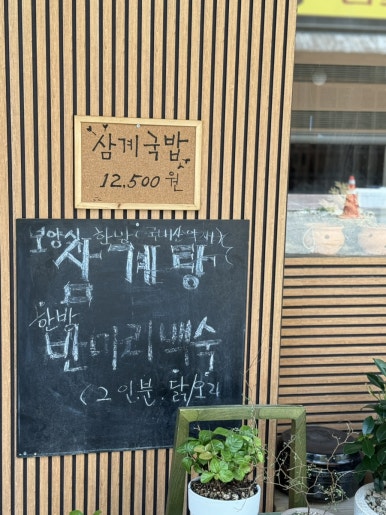 삼계국밥
12.500원
보양식 한방
삼계탕
한방
반마리백숙
(2인분. 닭/오리